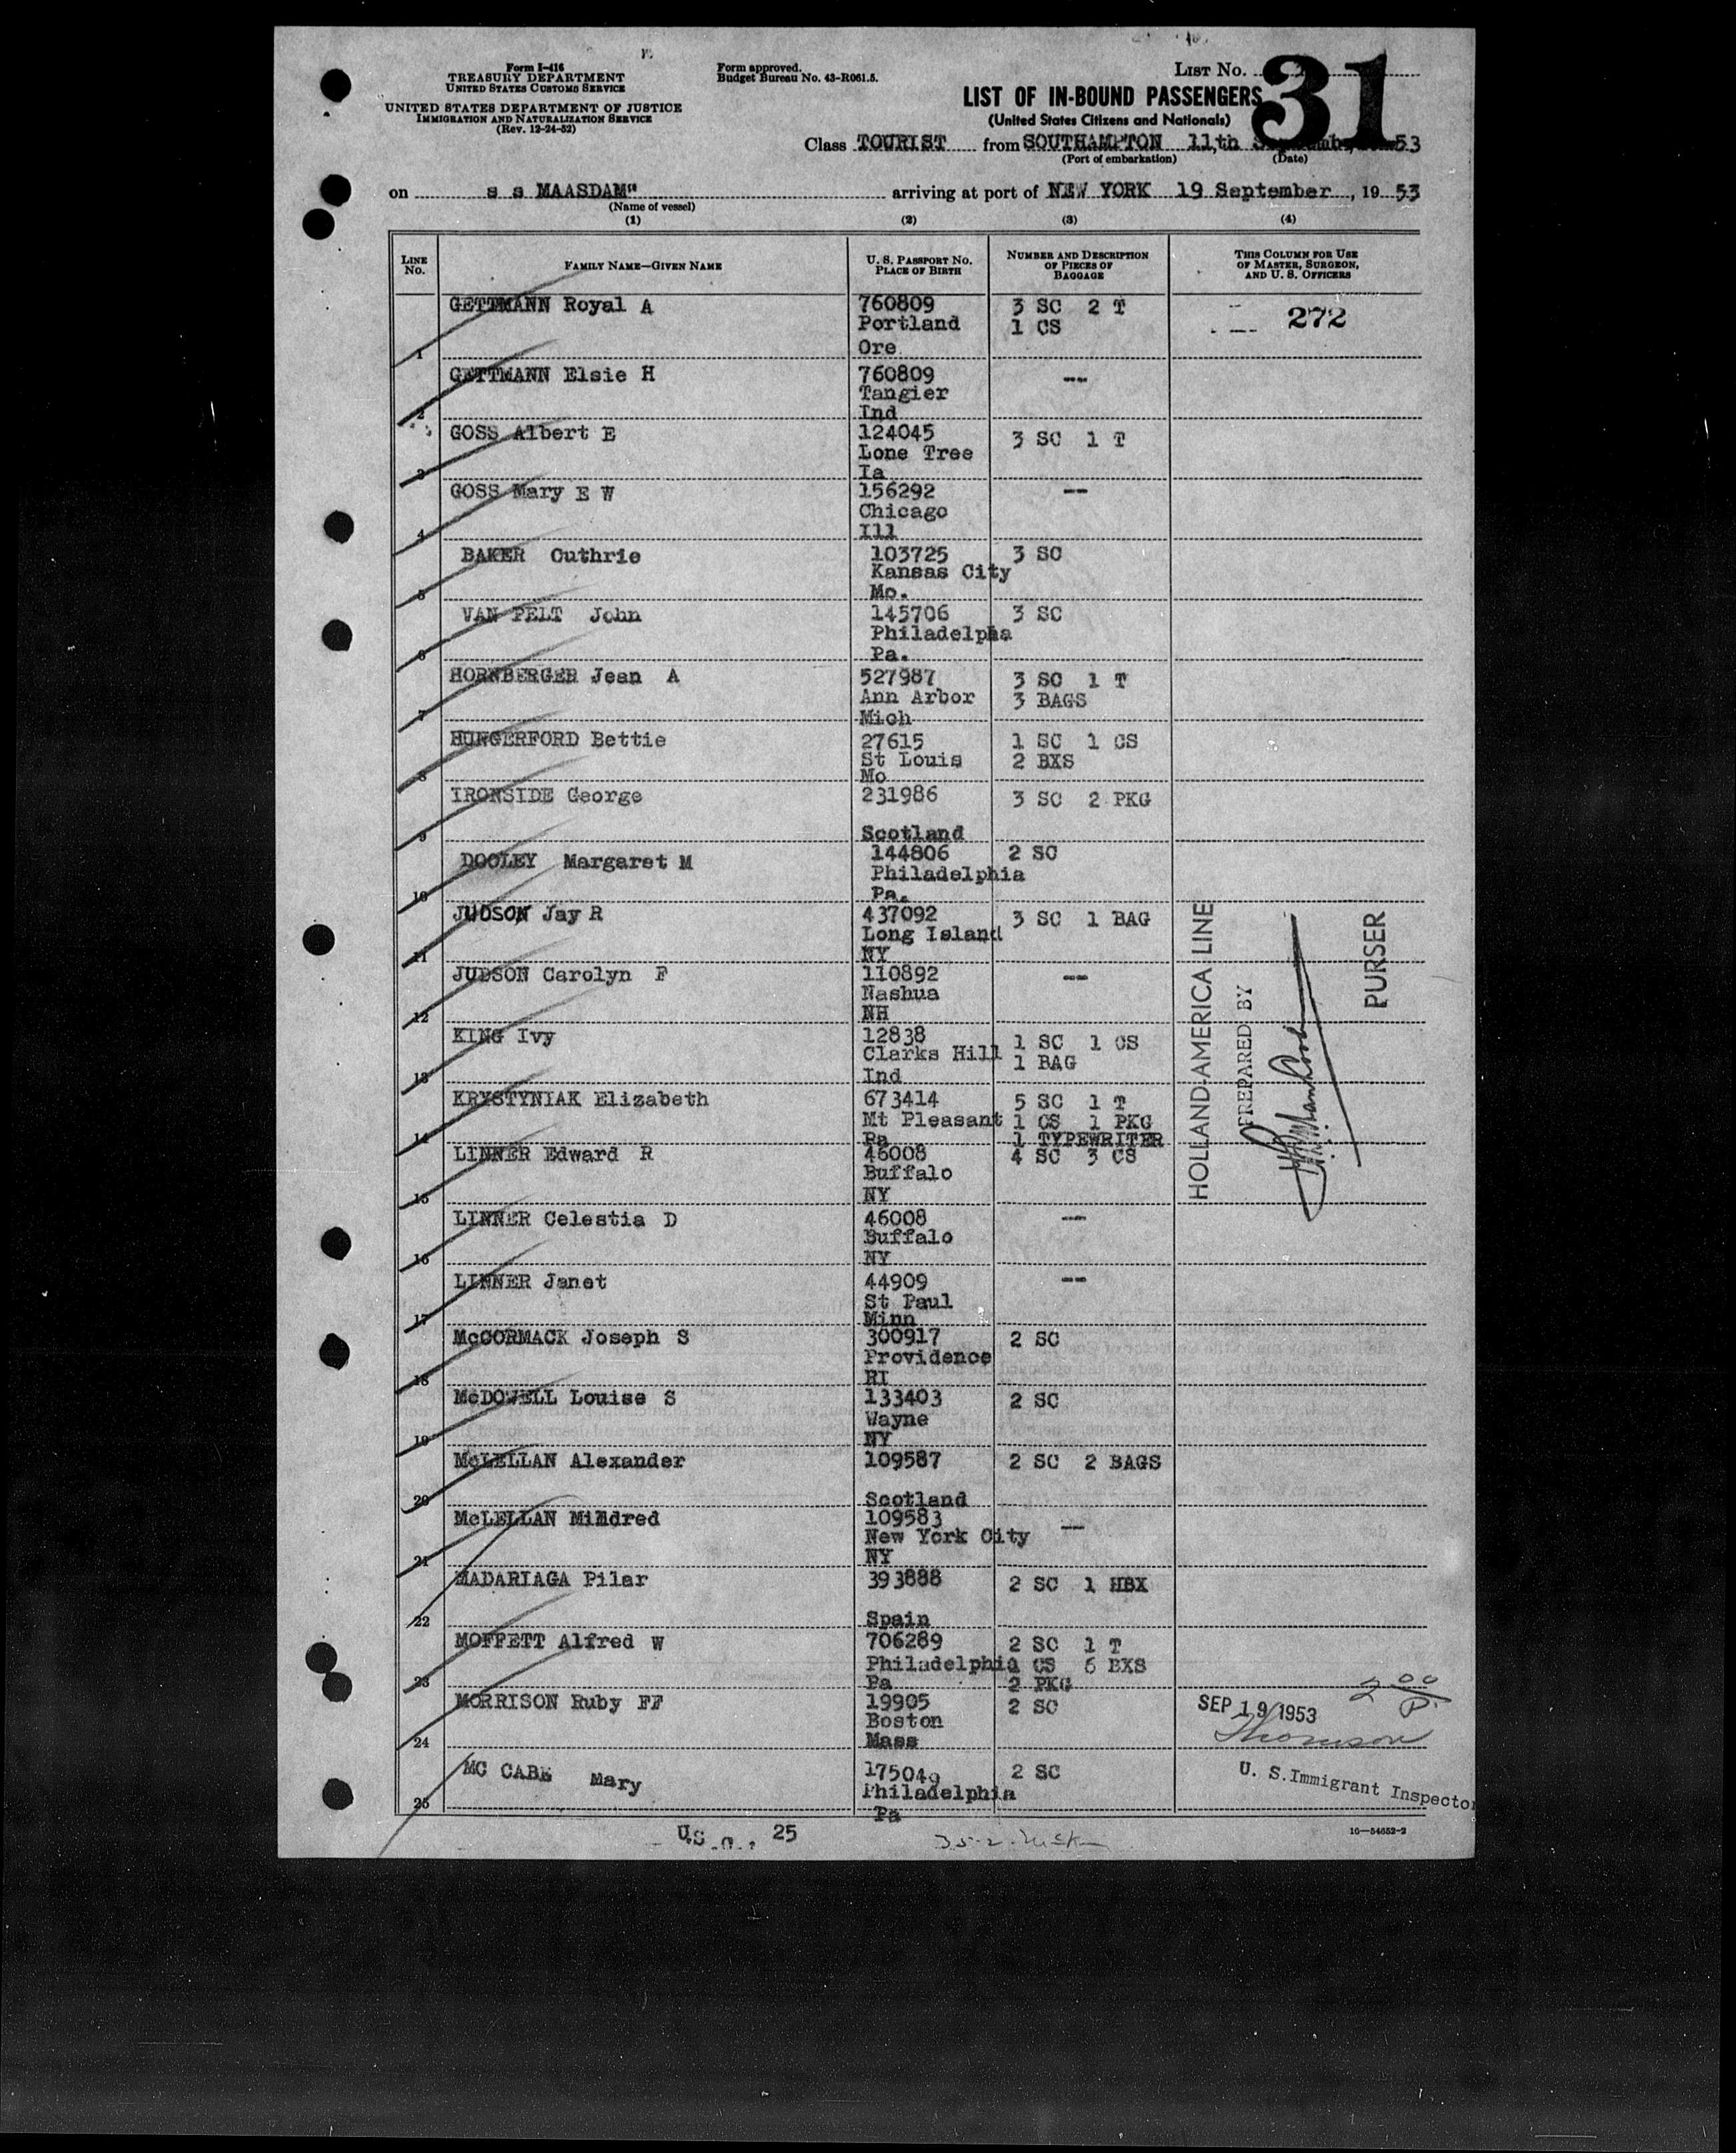 Form I-416
TREASURY DEPARTMENT
UNITED STATES CUSTOMS SERVICE
UNITED STATES DEPARTMENT OF JUSTICE
IMMIGRATION AND NATURALIZATION SERVICE
(Rev. 12-24-52)
Form approved.
Budget Bureau No. 43-R061.5.
LIST NO. 31
LIST OF IN-BOUND PASSENGERS
(United States Citizens and Nationals)
Class TOURIST from SOUTHAMPTON 11,th 53
(Port of embarkation) (Date)
on s s MAASDAM" arriving at port of NEW YORK 19 September, 19 53
(Name of vessel)
(1) (2) (3) (4)
LINE NO. FAMILY NAME—GIVEN NAME U. S. PASSPORT NO. PLACE OF BIRTH NUMBER AND DESCRIPTION OF PIECES OF BAGGAGE THIS COLUMN FOR USE OF MASTER, SURGEON, AND U. S. OFFICERS
GETTMANN Royal A 760809 3 SC 2 T 272
Portland 1 CS
1 Ore
GETTMANN Elsie H 760809 --
Tangier
2 Ind
GOSS Albert E 124045 3 SC 1 T
Lone Tree
3 Ia
GOSS Mary E W 156292 --
Chicago
4 Ill
BAKER Guthrie 103725 3 SC
Kansas City
5 Mo.
VAN PELT John 145706 3 SC
Philadelpha
6 Pa.
HORNBERGER Jean A 527987 3 SC 1 T
Ann Arbor 3 BAGS
7 Mich
HUNGERFORD Bettie 27615 1 SC 1 CS
St Louis 2 BXS
8 Mo
IRONSIDE George 231986 3 SC 2 PKG
9 Scotland
DOOLEY Margaret M 144806 2 SC
Philadelphia
10 Pa.
JUDSON Jay R 437092 3 SC 1 BAG
Long Island
11 NY
JUDSON Carolyn F 110892 --
Nashua
12 NH
KING Ivy 12838 1 SC 1 CS
Clarks Hill 1 BAG
13 Ind
KRYSTYNIAK Elizabeth 673414 5 SC 1 T
Mt Pleasant 1 CS 1 PKG
14 Pa 1 TYPEWRITER
LINNER Edward R 46008 4 SC 3 CS
Buffalo
15 NY
HOLLAND-AMERICA LINE
PREPARED BY
PURSER
LINNER Celestia D 46008 --
Buffalo
16 NY
LINNER Janet 44909 --
St Paul
17 Minn
McCORMACK Joseph S 300917 2 SC
Providence
18 RI
McDOWELL Louise S 133403 2 SC
Wayne
19 NY
McLELLAN Alexander 109587 2 SC 2 BAGS
20 Scotland
McLELLAN Mildred 109583 --
New York City
21 NY
MADARIAGA Pilar 393888 2 SC 1 HBX
22 Spain
MOFFETT Alfred W 706289 2 SC 1 T
Philadelphia 1 CS 6 BXS
23 Pa 2 PKG
MORRISON Ruby FF 19905 2 SC
Boston
24 Mass
SEP 19 1953
Thomson
U. S. Immigrant Inspector
MC CABE Mary 175049 2 SC
Philadelphia
25 Pa
U.S.C. 25
16—54652-2